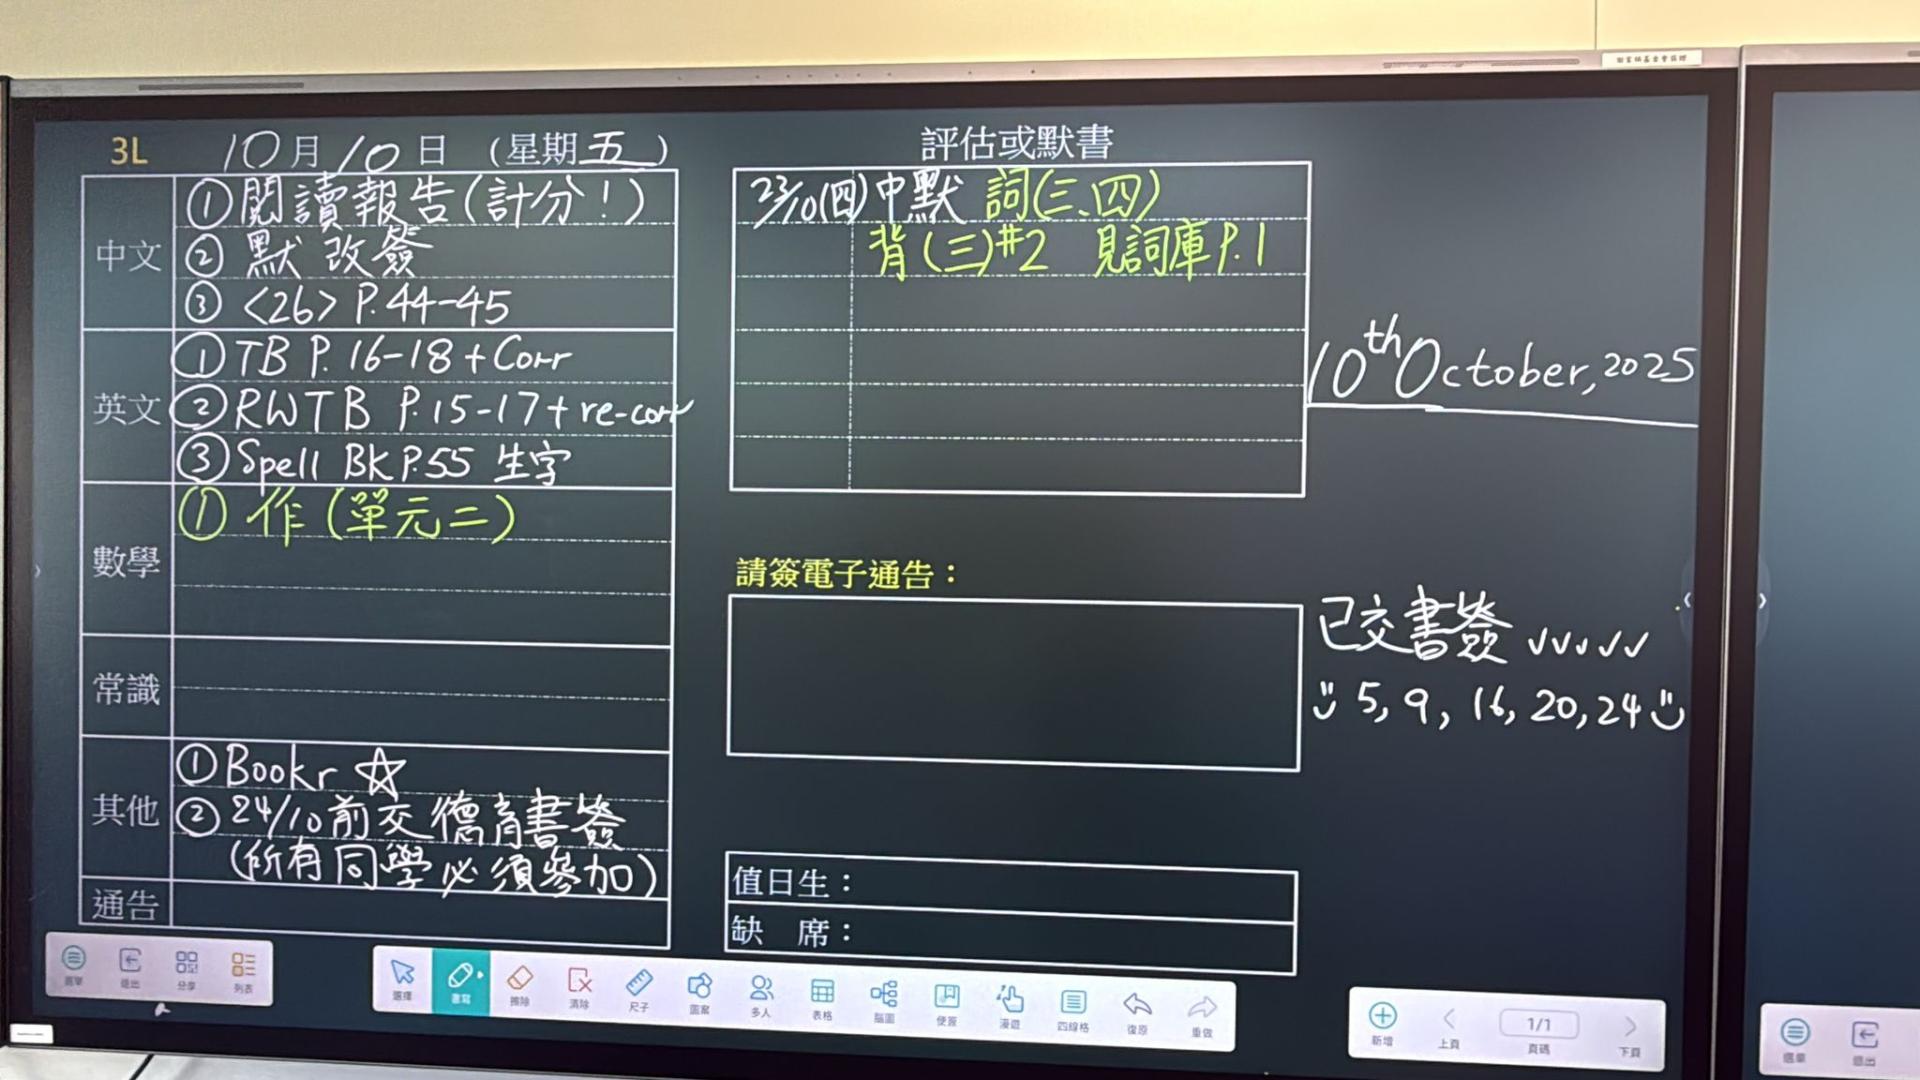 謝家炳基金會捐贈
3L 10月10日 (星期五)
中文
①閱讀報告(計分!)
② 默 改簽
③ <26> P.44-45
英文
① TB P. 16-18 + Corr
② RWTB P.15-17 + re-corr
③ Spell BK P.55 生字
數學
① 作(單元二)
常識
其他
① Bookr ☆
② 24/10前交 德育書簽
(所有同學必須參加)
通告
評估或默書
23/10(四) 中默 詞(三、四)
背(三)#2 見詞庫 P.1
10th October, 2025
請簽電子通告:
已交書簽 ✓✓✓✓✓
5, 9, 16, 20, 24
值日生:
缺 席:
選單 退出 分享 列表
選擇 書寫 擦除 清除 尺子 圖案 多人 表格 腦圖 便簽 漫遊 四線格 復原 重做
新增 上頁 1/1 頁碼 下頁
選單 退出